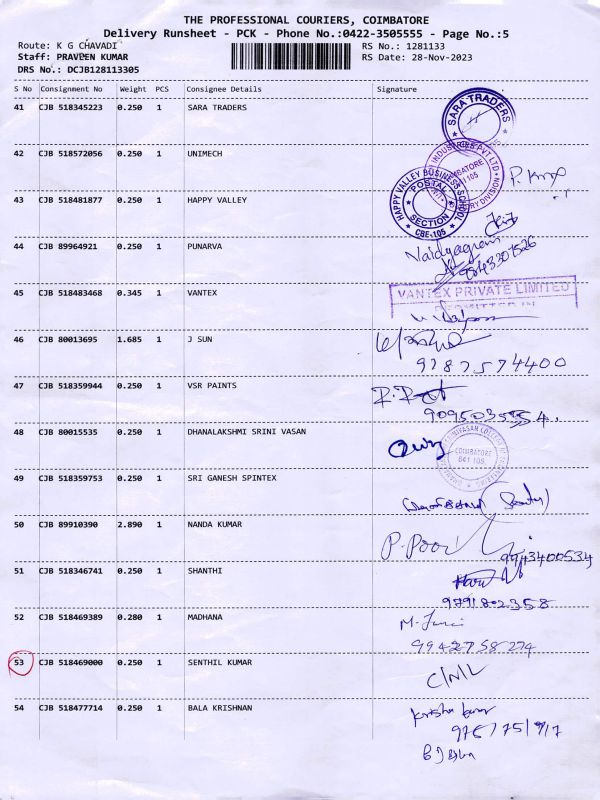 THE PROFESSIONAL COURIERS, COIMBATORE
Delivery Runsheet - PCK - Phone No.:0422-3505555 - Page No.:5
Route: K G CHAVADI RS No.: 1281133
Staff: PRAVEEN KUMAR RS Date: 28-Nov-2023
DRS No.: DCJB128113305
S No Consignment No Weight PCS Consignee Details Signature
41 CJB 518345223 0.250 1 SARA TRADERS
SARA TRADERS
42 CJB 518572056 0.250 1 UNIMECH
INDUSTRIES PVT LTD
43 CJB 518481877 0.250 1 HAPPY VALLEY
HAPPY VALLEY BUSINESS SCHOOL
POSTAL
SECTION
CBE-105
44 CJB 89964921 0.250 1 PUNARVA
45 CJB 518483468 0.345 1 VANTEX
VANTEX PRIVATE LIMITED
46 CJB 80013695 1.685 1 J SUN
9787574400
47 CJB 518359944 0.250 1 VSR PAINTS
48 CJB 80015535 0.250 1 DHANALAKSHMI SRINI VASAN
COIMBATORE
641 105
49 CJB 518359753 0.250 1 SRI GANESH SPINTEX
50 CJB 89910390 2.890 1 NANDA KUMAR
9943400534
51 CJB 518346741 0.250 1 SHANTHI
9791802358
52 CJB 518469389 0.280 1 MADHANA
9942758274
53 CJB 518469000 0.250 1 SENTHIL KUMAR
54 CJB 518477714 0.250 1 BALA KRISHNAN